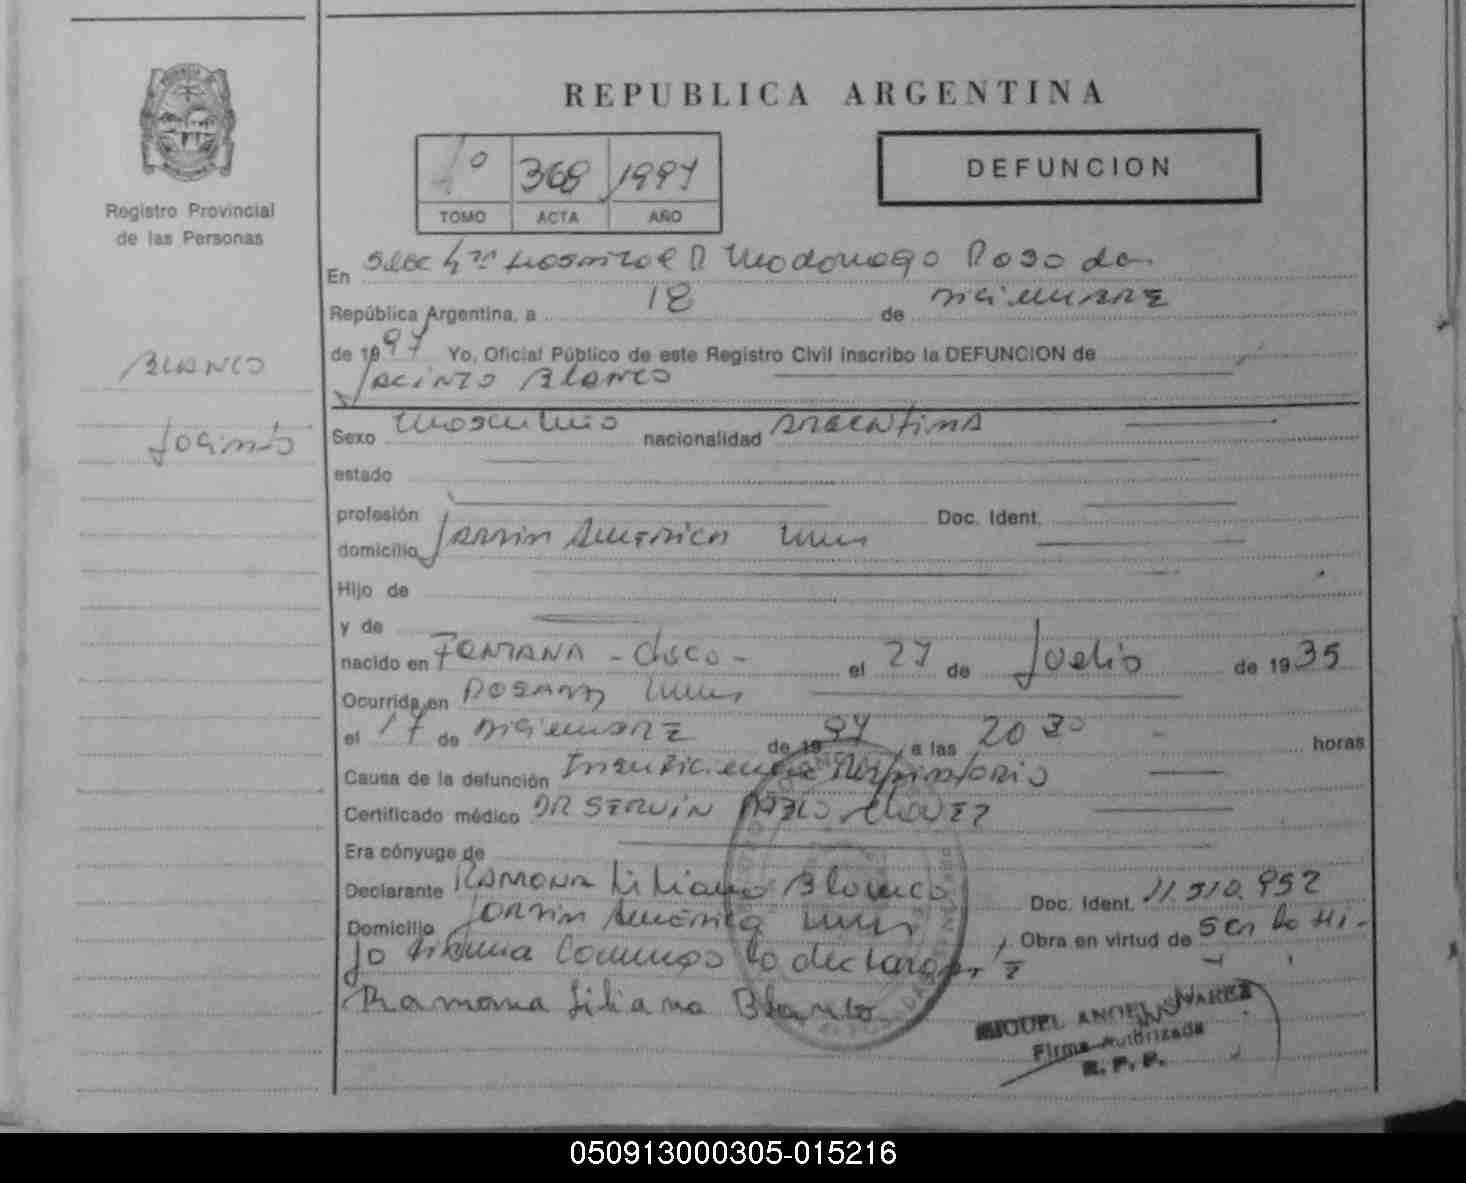 REPUBLICA ARGENTINA
1º 368 1997
TOMO ACTA AÑO
DEFUNCION
Registro Provincial
de las Personas
BLANCO
Jacinto
En Posadas
República Argentina, a 18 de DICIEMBRE
de 1997 Yo, Oficial Público de este Registro Civil inscribo la DEFUNCION de
JACINTO BLANCO
Sexo Masculino nacionalidad ARGENTINA
estado
profesión Doc. Ident.
domicilio JARDIN AMERICA Mnes
Hijo de
y de
nacido en FONTANA - CHACO - el 27 de Julio de 1935
Ocurrida en POSADAS Mnes
el 17 de DICIEMBRE de 1997 a las 20 30 horas
Causa de la defunción Insuficiencia Respiratorio
Certificado médico DR SERVIN PABLO CHAVEZ
Era cónyuge de
Declarante RAMONA Liliana Blanco Doc. Ident. 11.510.952
Domicilio JARDIN AMERICA Mnes Obra en virtud de ser
lo declaro
Ramona Liliana Blanco
MIGUEL ANGEL SUAREZ
Firma Autorizada
R. P. P.
050913000305-015216